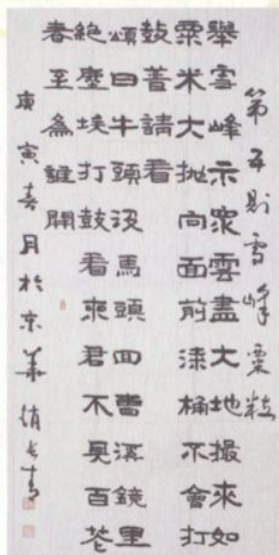 第五則雪峰粟粒
舉雪峰示眾雲盡大地撮來如
粟米大拋向面前漆桶不會打
鼓普請看
頌曰牛頭没馬頭回曹溪鏡里
絕塵埃打鼓看來君不見百花
春至為誰開
庚寅春月於京華趙長青